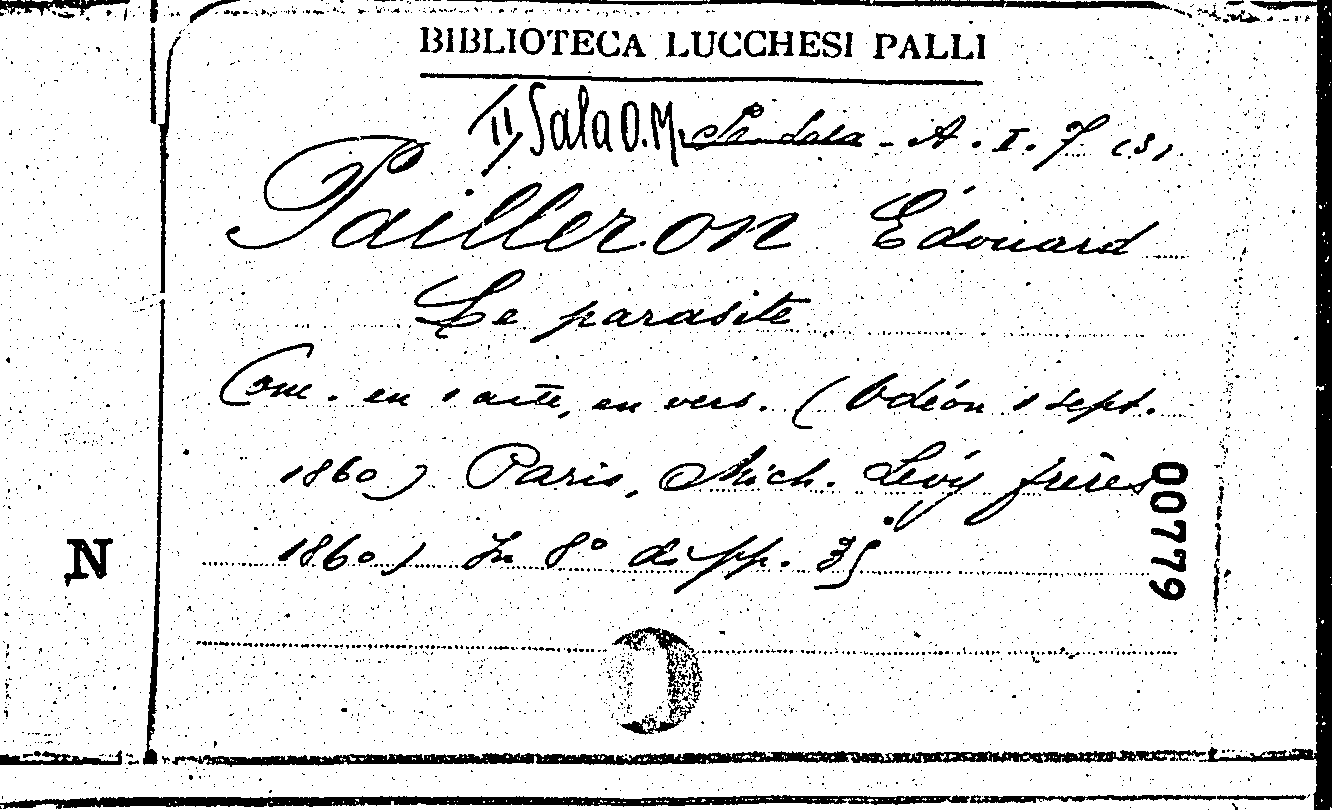 BIBLIOTECA LUCCHESI PALLI
II Sala O.M. Sala - A. I. 7 (3)
Pailleron Édouard
Le parasite
Com. en 1 acte, en vers. (Odéon 1 sept.
1860) Paris, Mich. Lévy frères
1860) In 8° di pp. 35
00779
N